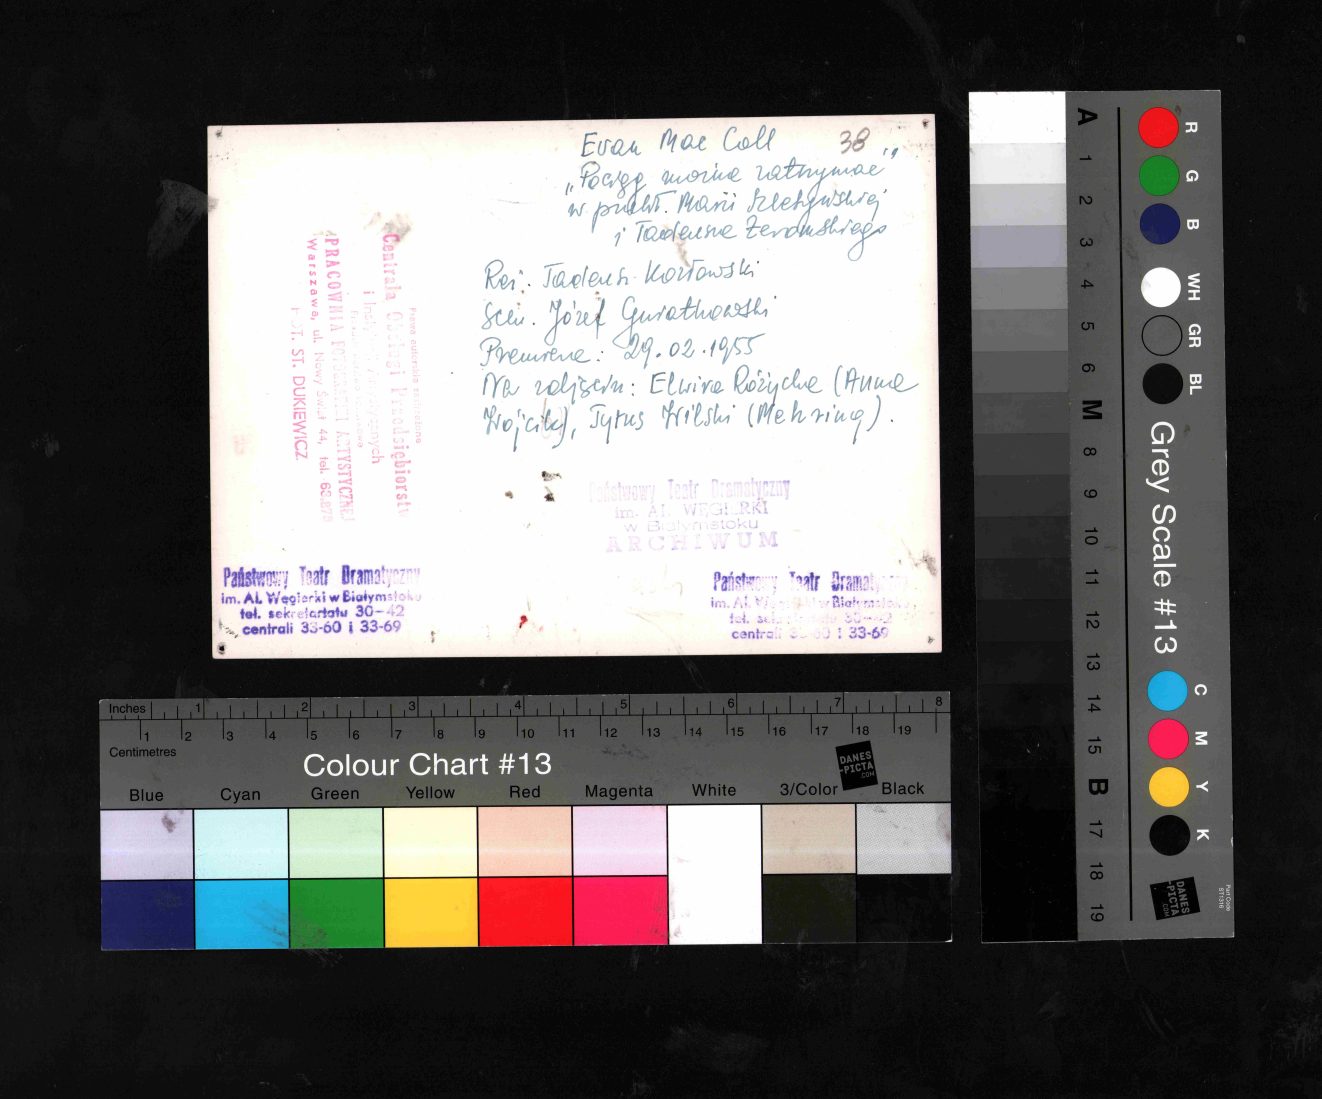 Evan Mac Coll
38
„Pociąg można zatrzymać”
w przekł. Marii
i Tadeusza Żeromskiego
Reż. Tadeusz Kozłowski
Scen. Józef Gwiatkowski
Premiera: 29.02.1955
Na zdjęciu: Elwira Różycka (Anna
Wójcik), Tytus Wilski (Mehring).
Prawa autorskie zastrzeżone
Centrala Obsługi Przedsiębiorstw
i Artystycznych
PRACOWNIA ARTYSTYCZNEJ
Warszawa, ul. Nowy Świat 44, tel.
FOT. ST. DUKIEWICZ
Państwowy Teatr Dramatyczny
im. Al. WĘGIERKI
w Białymstoku
ARCHIWUM
Państwowy Teatr Dramatyczny
im. Al. Węgierki w Białymstoku
tel. sekretariatu 30-42
centrali 33-60 i 33-69
Państwowy Teatr Dramatyczny
im. Al. Węgierki w Białymstoku
tel. sekretariatu 30-42
centrali 33-60 i 33-69
Inches 1 2 3 4 5 6 7 8
1 2 3 4 5 6 7 8 9 10 11 12 13 14 15 16 17 18 19
Centimetres
Colour Chart #13
DANES
-PICTA
.COM
Blue Cyan Green Yellow Red Magenta White 3/Color Black
A 1 2 3 4 5 6 M 8 9 10 11 12 13 14 15 B 17 18 19
R G B WH GR BL
Grey Scale #13
C M Y K
DANES
-PICTA
.COM
Part Code
ST1316